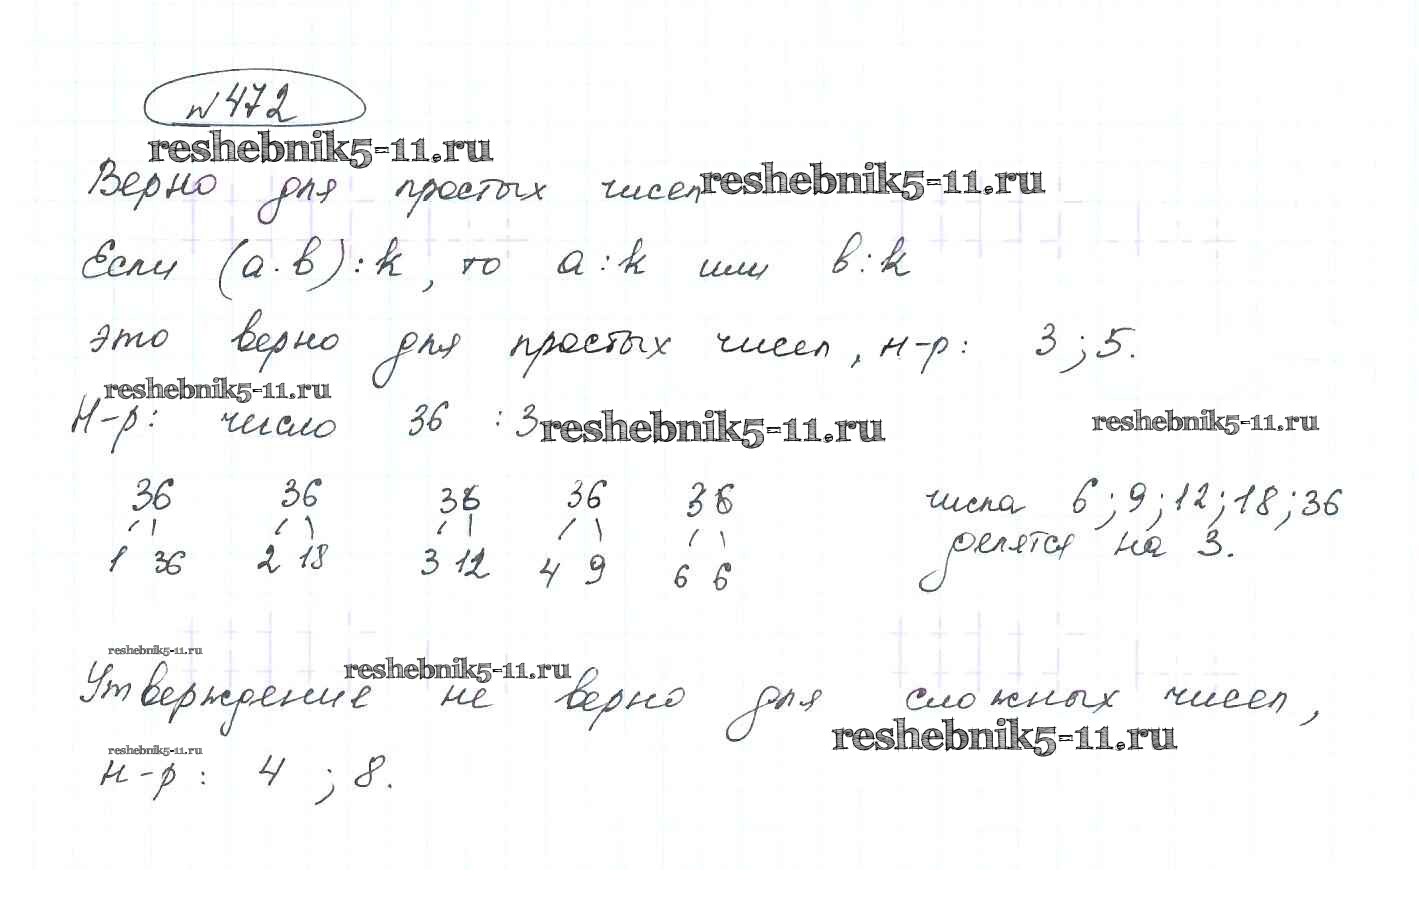 № 472
reshebnik5-11.ru
Верно для простых чисел reshebnik5-11.ru
Если (a·b):k, то a:k или b:k
это верно для простых чисел, н-р: 3;5.
reshebnik5-11.ru
Н-р: число 36 :3 reshebnik5-11.ru reshebnik5-11.ru
36 36 36 36 36
1 36 2 18 3 12 4 9 6 6
числа 6;9;12;18;36
делятся на 3.
reshebnik5-11.ru
reshebnik5-11.ru
Утверждение не верно для сложных чисел,
reshebnik5-11.ru
reshebnik5-11.ru
н-р: 4 ; 8.